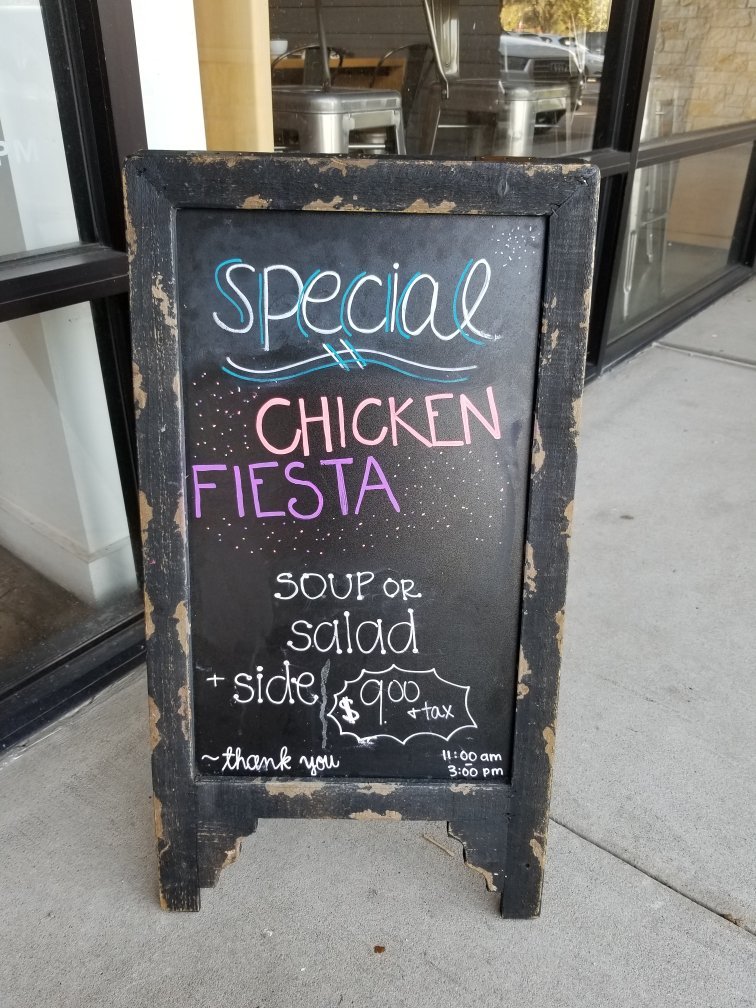 Special
CHICKEN
FIESTA
SOUP OR
salad
+ side
$9.00
+ tax
~thank you
11:00 am
-
3:00 pm
PM